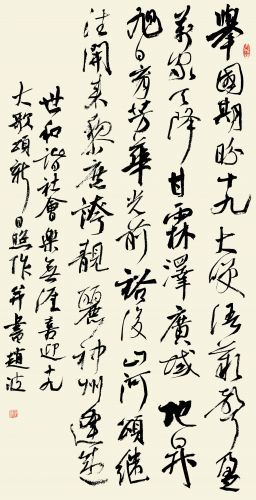 舉國期盼十九大笑語歡聲盈
萬家天降甘霖澤廣域地昇
旭日育芳華光前裕後山河頌繼
往開來黎庶誇靚麗神州逢盛
世和諧社會樂無涯喜迎十九
大歌頌新日照作并書趙波